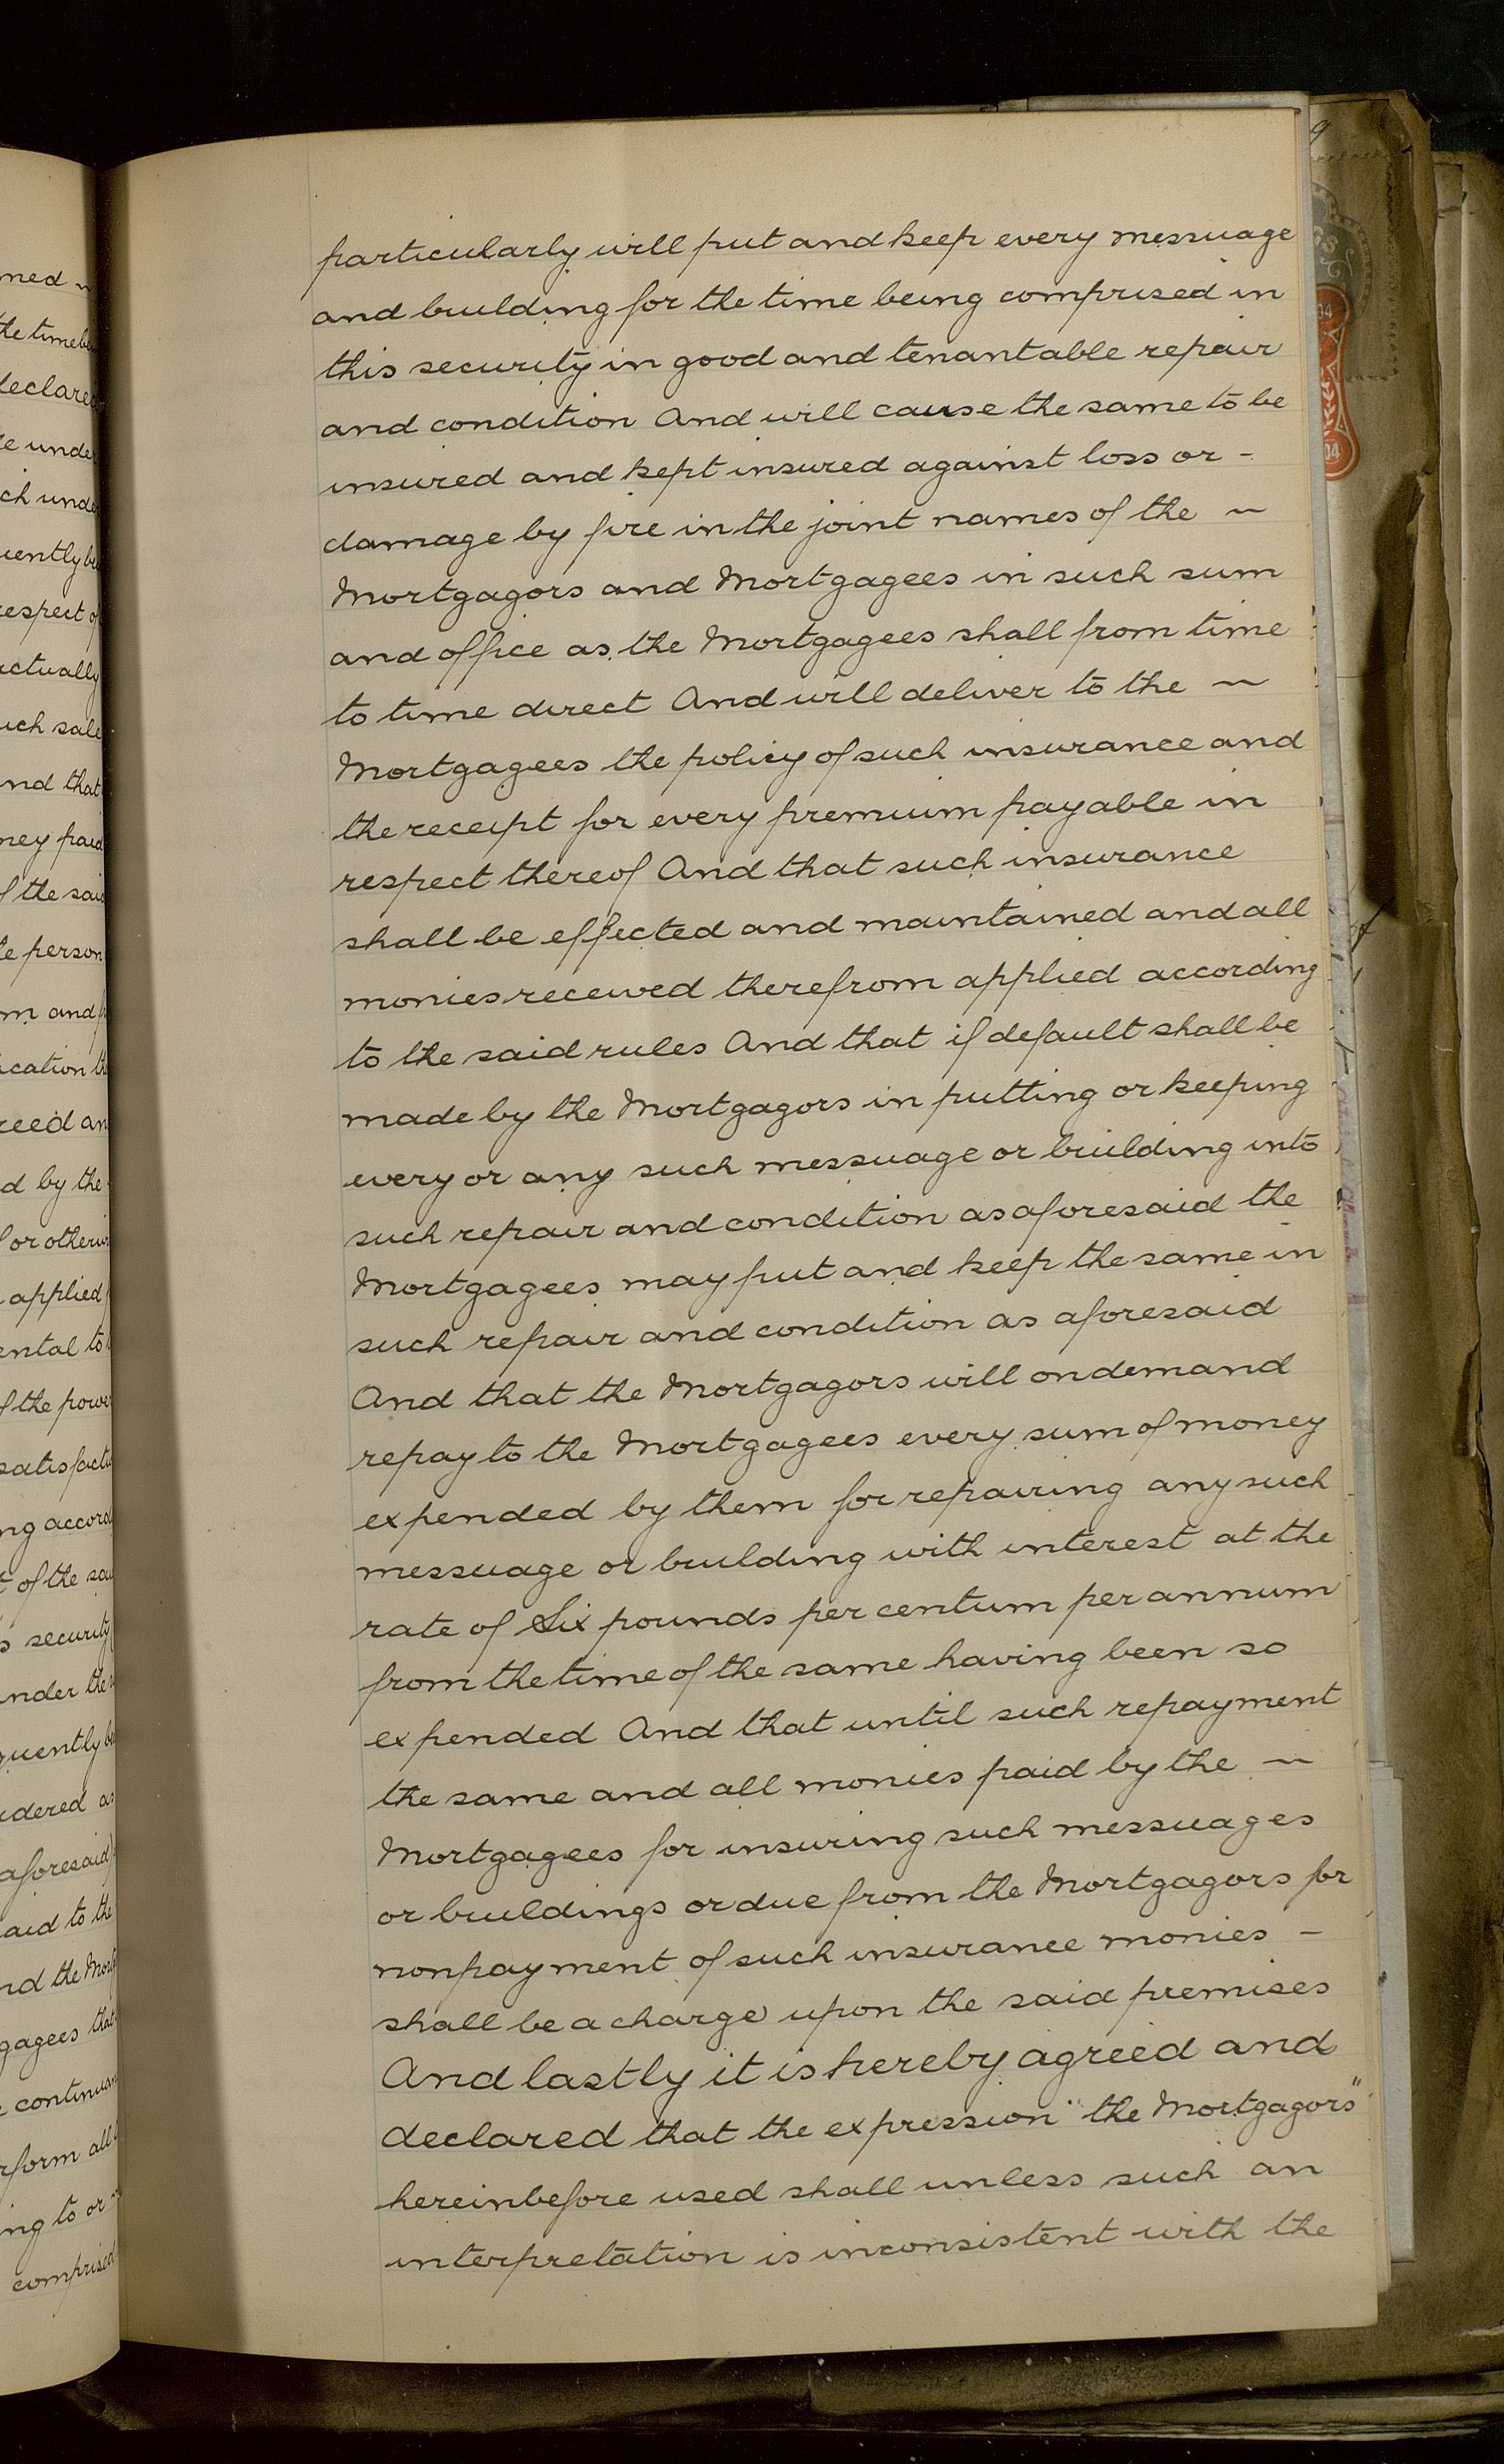 particularly will put and keep every messuage
and building for the time being comprised in
this security in good and tenantable repair
and condition And will cause the same to be
insured and kept insured against loss or -
damage by fire in the joint names of the ~
Mortgagors and Mortgagees in such sum
and office as the Mortgagees shall from time
to time direct And will deliver to the ~
Mortgagees the policy of such insurance and
the receipt for every premium payable in
respect thereof And that such insurance
shall be effected and maintained and all
monies received therefrom applied according
to the said rules And that if default shall be
made by the Mortgagors in putting or keeping
every or any such messuage or building into
such repair and condition as aforesaid the
Mortgagees may put and keep the same in
such repair and condition as aforesaid
And that the Mortgagors will on demand
repay to the Mortgagees every sum of money
expended by them for repairing any such
messuage or building with interest at the
rate of Six pounds per centum per annum
from the time of the same having been so
expended And that until such repayment
the same and all monies paid by the ~
Mortgagees for insuring such messuages
or buildings or due from the Mortgagors for
nonpayment of such insurance monies -
shall be a charge upon the said premises
And lastly it is hereby agreed and
declared that the expression "the Mortgagors"
hereinbefore used shall unless such an
interpretation is inconsistent with the